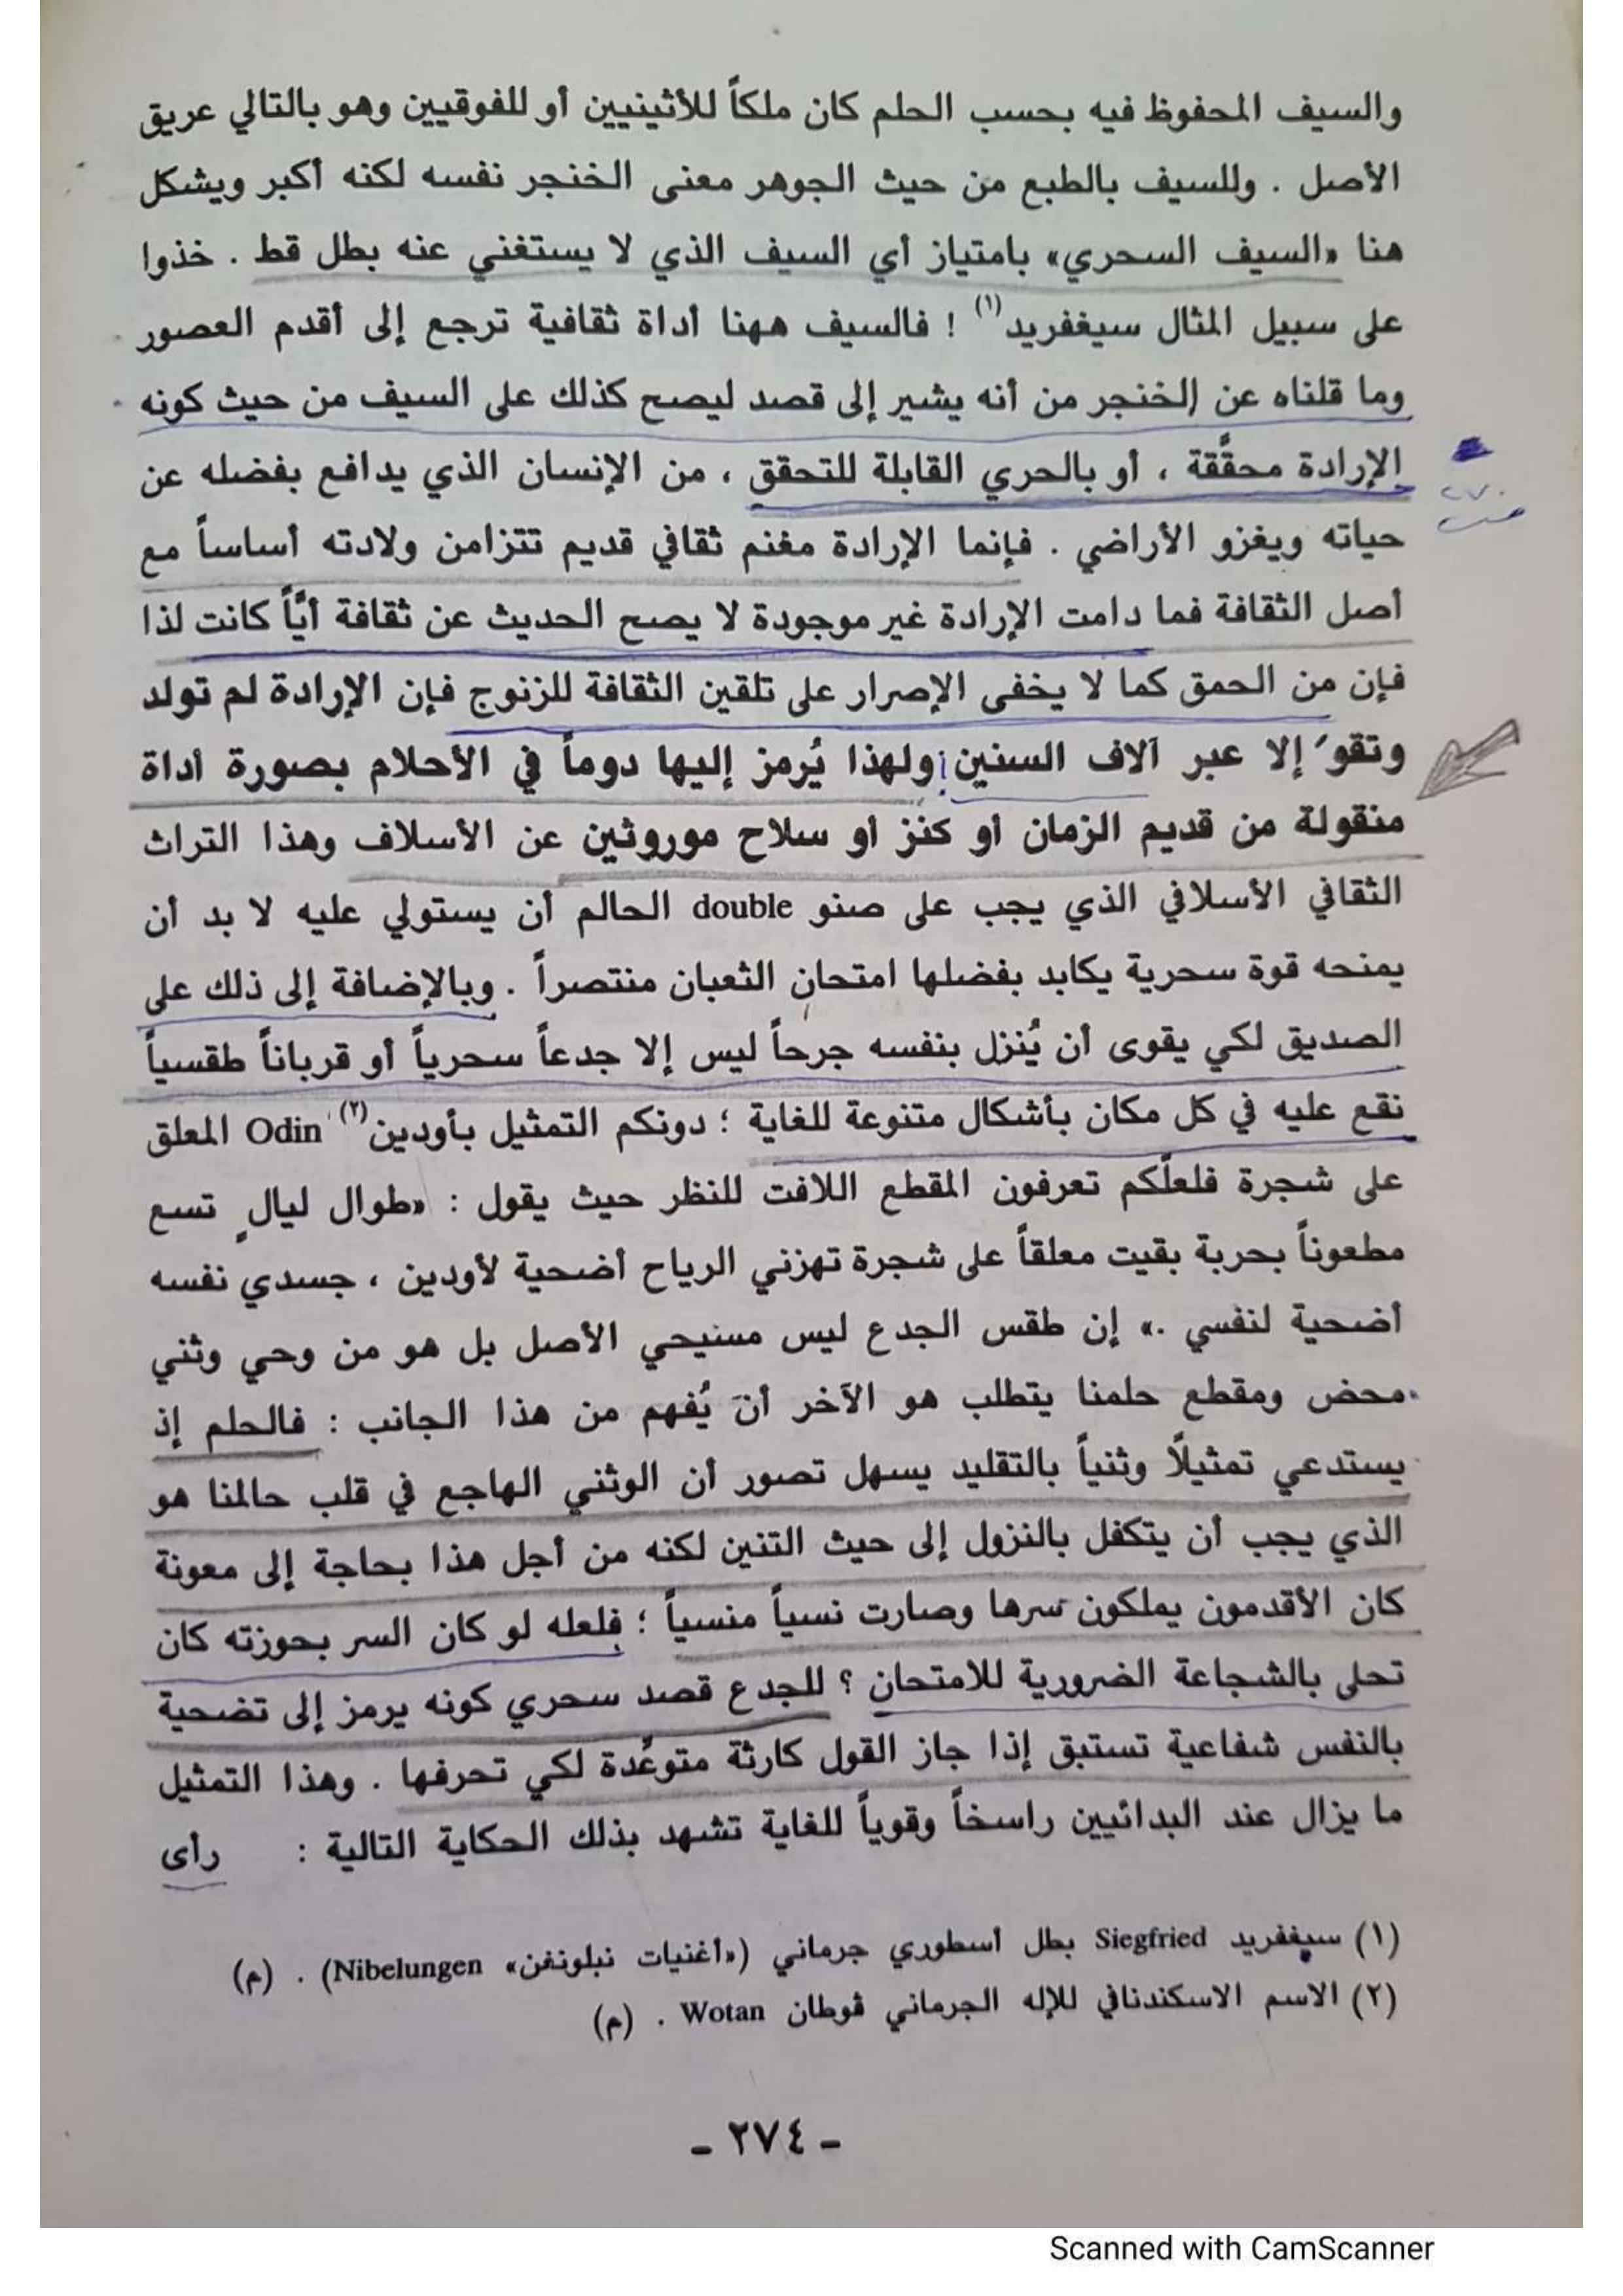 والسيف المحفوظ فيه بحسب الحلم كان ملكاً للأثينيين أو للفوقيين وهو بالتالي عريق
الأصل . وللسيف بالطبع من حيث الجوهر معنى الخنجر نفسه لكنه أكبر ويشكل
هنا «السيف السحري» بامتياز أي السيف الذي لا يستغني عنه بطل قط . خذوا
على سبيل المثال سيغفريد(١) ! فالسيف ههنا أداة ثقافية ترجع إلى أقدم العصور
وما قلناه عن الخنجر من أنه يشير إلى قصد ليصح كذلك على السيف من حيث كونه
الإرادة محقَّقة ، أو بالحري القابلة للتحقق ، من الإنسان الذي يدافع بفضله عن
٢٧٠
حياته ويغزو الأراضي . فإنما الإرادة مغنم ثقافي قديم تتزامن ولادته أساساً مع
أصل الثقافة فما دامت الإرادة غير موجودة لا يصح الحديث عن ثقافة أيَّاً كانت لذا
فإن من الحمق كما لا يخفى الإصرار على تلقين الثقافة للزنوج فإن الإرادة لم تولد
وتقوَ إلا عبر آلاف السنين ولهذا يُرمز إليها دوماً في الأحلام بصورة أداة
منقولة من قديم الزمان أو كنز أو سلاح موروثين عن الأسلاف وهذا التراث
الثقافي الأسلافي الذي يجب على صنو double الحالم أن يستولي عليه لا بد أن
يمنحه قوة سحرية يكابد بفضلها امتحان الثعبان منتصراً . وبالإضافة إلى ذلك على
الصديق لكي يقوى أن يُنزل بنفسه جرحاً ليس إلا جدعاً سحرياً أو قرباناً طقسياً
نقع عليه في كل مكان بأشكال متنوعة للغاية ؛ دونكم التمثيل بأودين(٢) Odin المعلق
على شجرة فلعلّكم تعرفون المقطع اللافت للنظر حيث يقول : «طوال ليالٍ تسع
مطعوناً بحربة بقيت معلقاً على شجرة تهزني الرياح أضحية لأودين ، جسدي نفسه
أضحية لنفسي .» إن طقس الجدع ليس مسيحي الأصل بل هو من وحي وثني
محض ومقطع حلمنا يتطلب هو الآخر أن يُفهم من هذا الجانب : فالحلم إذ
يستدعي تمثيلاً وثنياً بالتقليد يسهل تصور أن الوثني الهاجع في قلب حالمنا هو
الذي يجب أن يتكفل بالنزول إلى حيث التنين لكنه من أجل هذا بحاجة إلى معونة
كان الأقدمون يملكون سرها وصارت نسياً منسياً ؛ فلعله لو كان السر بحوزته كان
تحلى بالشجاعة الضرورية للامتحان ؟ للجدع قصد سحري كونه يرمز إلى تضحية
بالنفس شفاعية تستبق إذا جاز القول كارثة متوعَّدة لكي تحرفها . وهذا التمثيل
ما يزال عند البدائيين راسخاً وقوياً للغاية تشهد بذلك الحكاية التالية : رأى
(١) سيغفريد Siegfried بطل أسطوري جرماني («أغنيات نبلونغن» Nibelungen) . (م)
(٢) الاسم الاسكندنافي للإله الجرماني ڤوطان Wotan . (م)
- ٢٧٤ -
Scanned with CamScanner